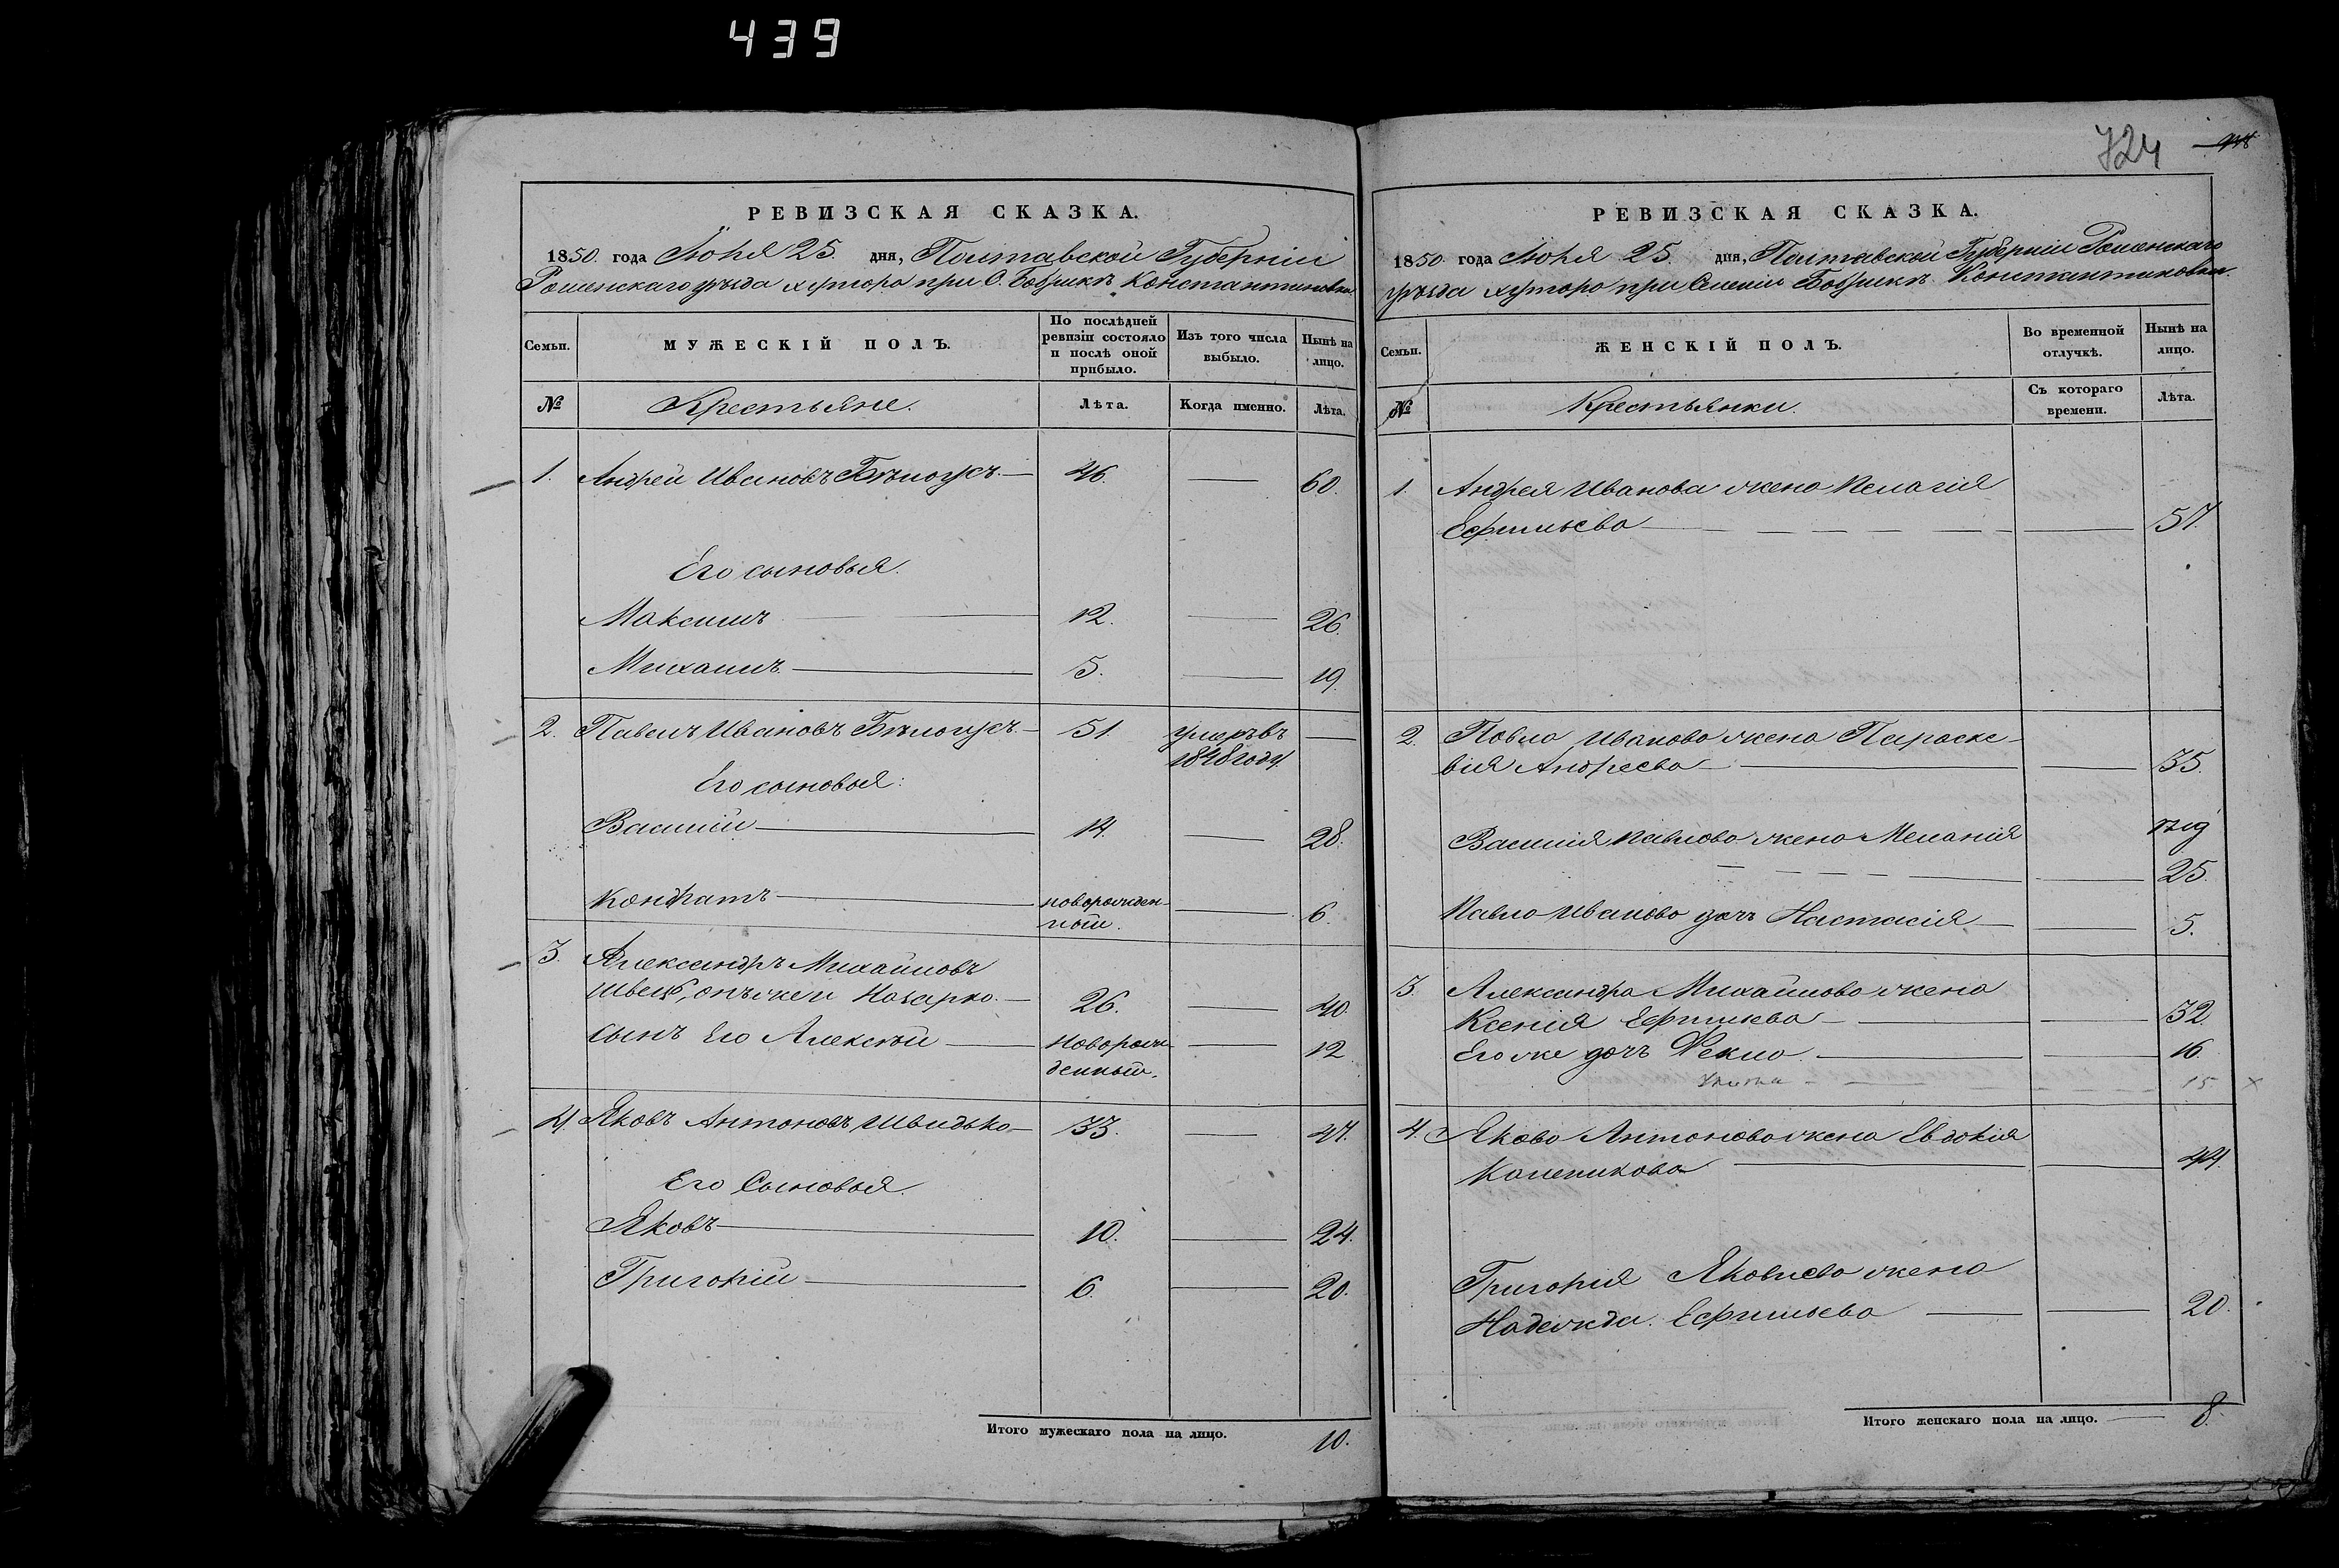 439
724
РЕВИЗСКАЯ СКАЗКА.
1850. года Июня 25. дня, Полтавской Губерніи
Роменскаго уѣзда хутора при С. Бобрикѣ Константиновки
Семьи. МУЖЕСКІЙ ПОЛЪ. По послѣдней ревизіи состояло и послѣ оной прибыло. Изъ того числа выбыло. Нынѣ на лицо.
№ Крестьяне. Лѣта. Когда именно. Лѣта.
1. Андрей Ивановъ Бѣлоусъ. 46. 60.
Его сыновья.
Максимъ 12. 26.
Михаилъ 5. 19.
2. Павелъ Ивановъ Бѣлоусъ. 51 умеръ въ
1848 году.
Его сыновья:
Василій 14. 28.
Кондратъ новорожден-
ный. 6.
3. Александръ Михайловъ
Швецъ, онъ же и Назарко. 26. 40.
сынъ Его Алексѣй новорож-
денный. 12
4. Яковъ Антоновъ Швидько 33. 47.
Его Сыновья.
Яковъ 10. 24.
Григорій 6. 20.
Итого мужескаго пола на лицо. 10.
РЕВИЗСКАЯ СКАЗКА.
1850. года Июня 25. дня, Полтавской Губерніи Роменскаго
уѣзда хутора при Селеніи Бобрикѣ Константиновки.
Семьи. ЖЕНСКІЙ ПОЛЪ. Во временной отлучкѣ. Нынѣ на лицо.
№ Крестьянки. Съ котораго времени. Лѣта.
1. Андрея Иванова жена Пелагія
Ефимьева 57.
2. Павла Иванова жена Параске-
вія Андреева 35.
Василія Павлова жена Меланія
25.
Павла Иванова дочь Настасія 5.
3. Александра Михайлова жена
Ксенія Ефимьева 32.
Его же дочь Фекла 16.
15 х
4. Якова Антонова жена Евдокія
44.
Григорія Яковлева жена
Надежда Ефимьева 20.
Итого женскаго пола на лицо. 8.